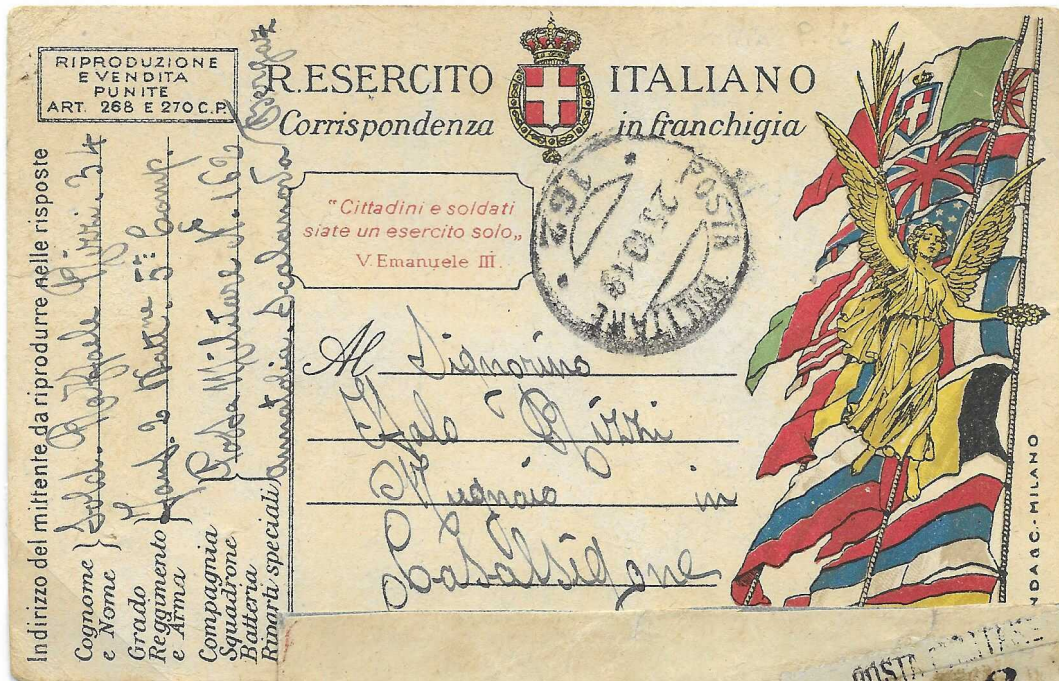 RIPRODUZIONE
E VENDITA
PUNITE
ART. 268 E 270 C.P.
R. ESERCITO ITALIANO
Corrispondenza in franchigia
"Cittadini e soldati
siate un esercito solo„
V. Emanuele III.
162
POSTA MILITARE
Al Signorino
Italo Rizzi
Mugnaio in
Casalsigone
Indirizzo del mittente da riprodurre nelle risposte
Cognome
e Nome
Sold. Raffaele Rizzi. 34
Grado
Reggimento
e Arma
Compagnia
Squadrone
Batteria
Posta Militare N. 162
Riparti speciali
NDA & C. - MILANO
POSTA MILITARE